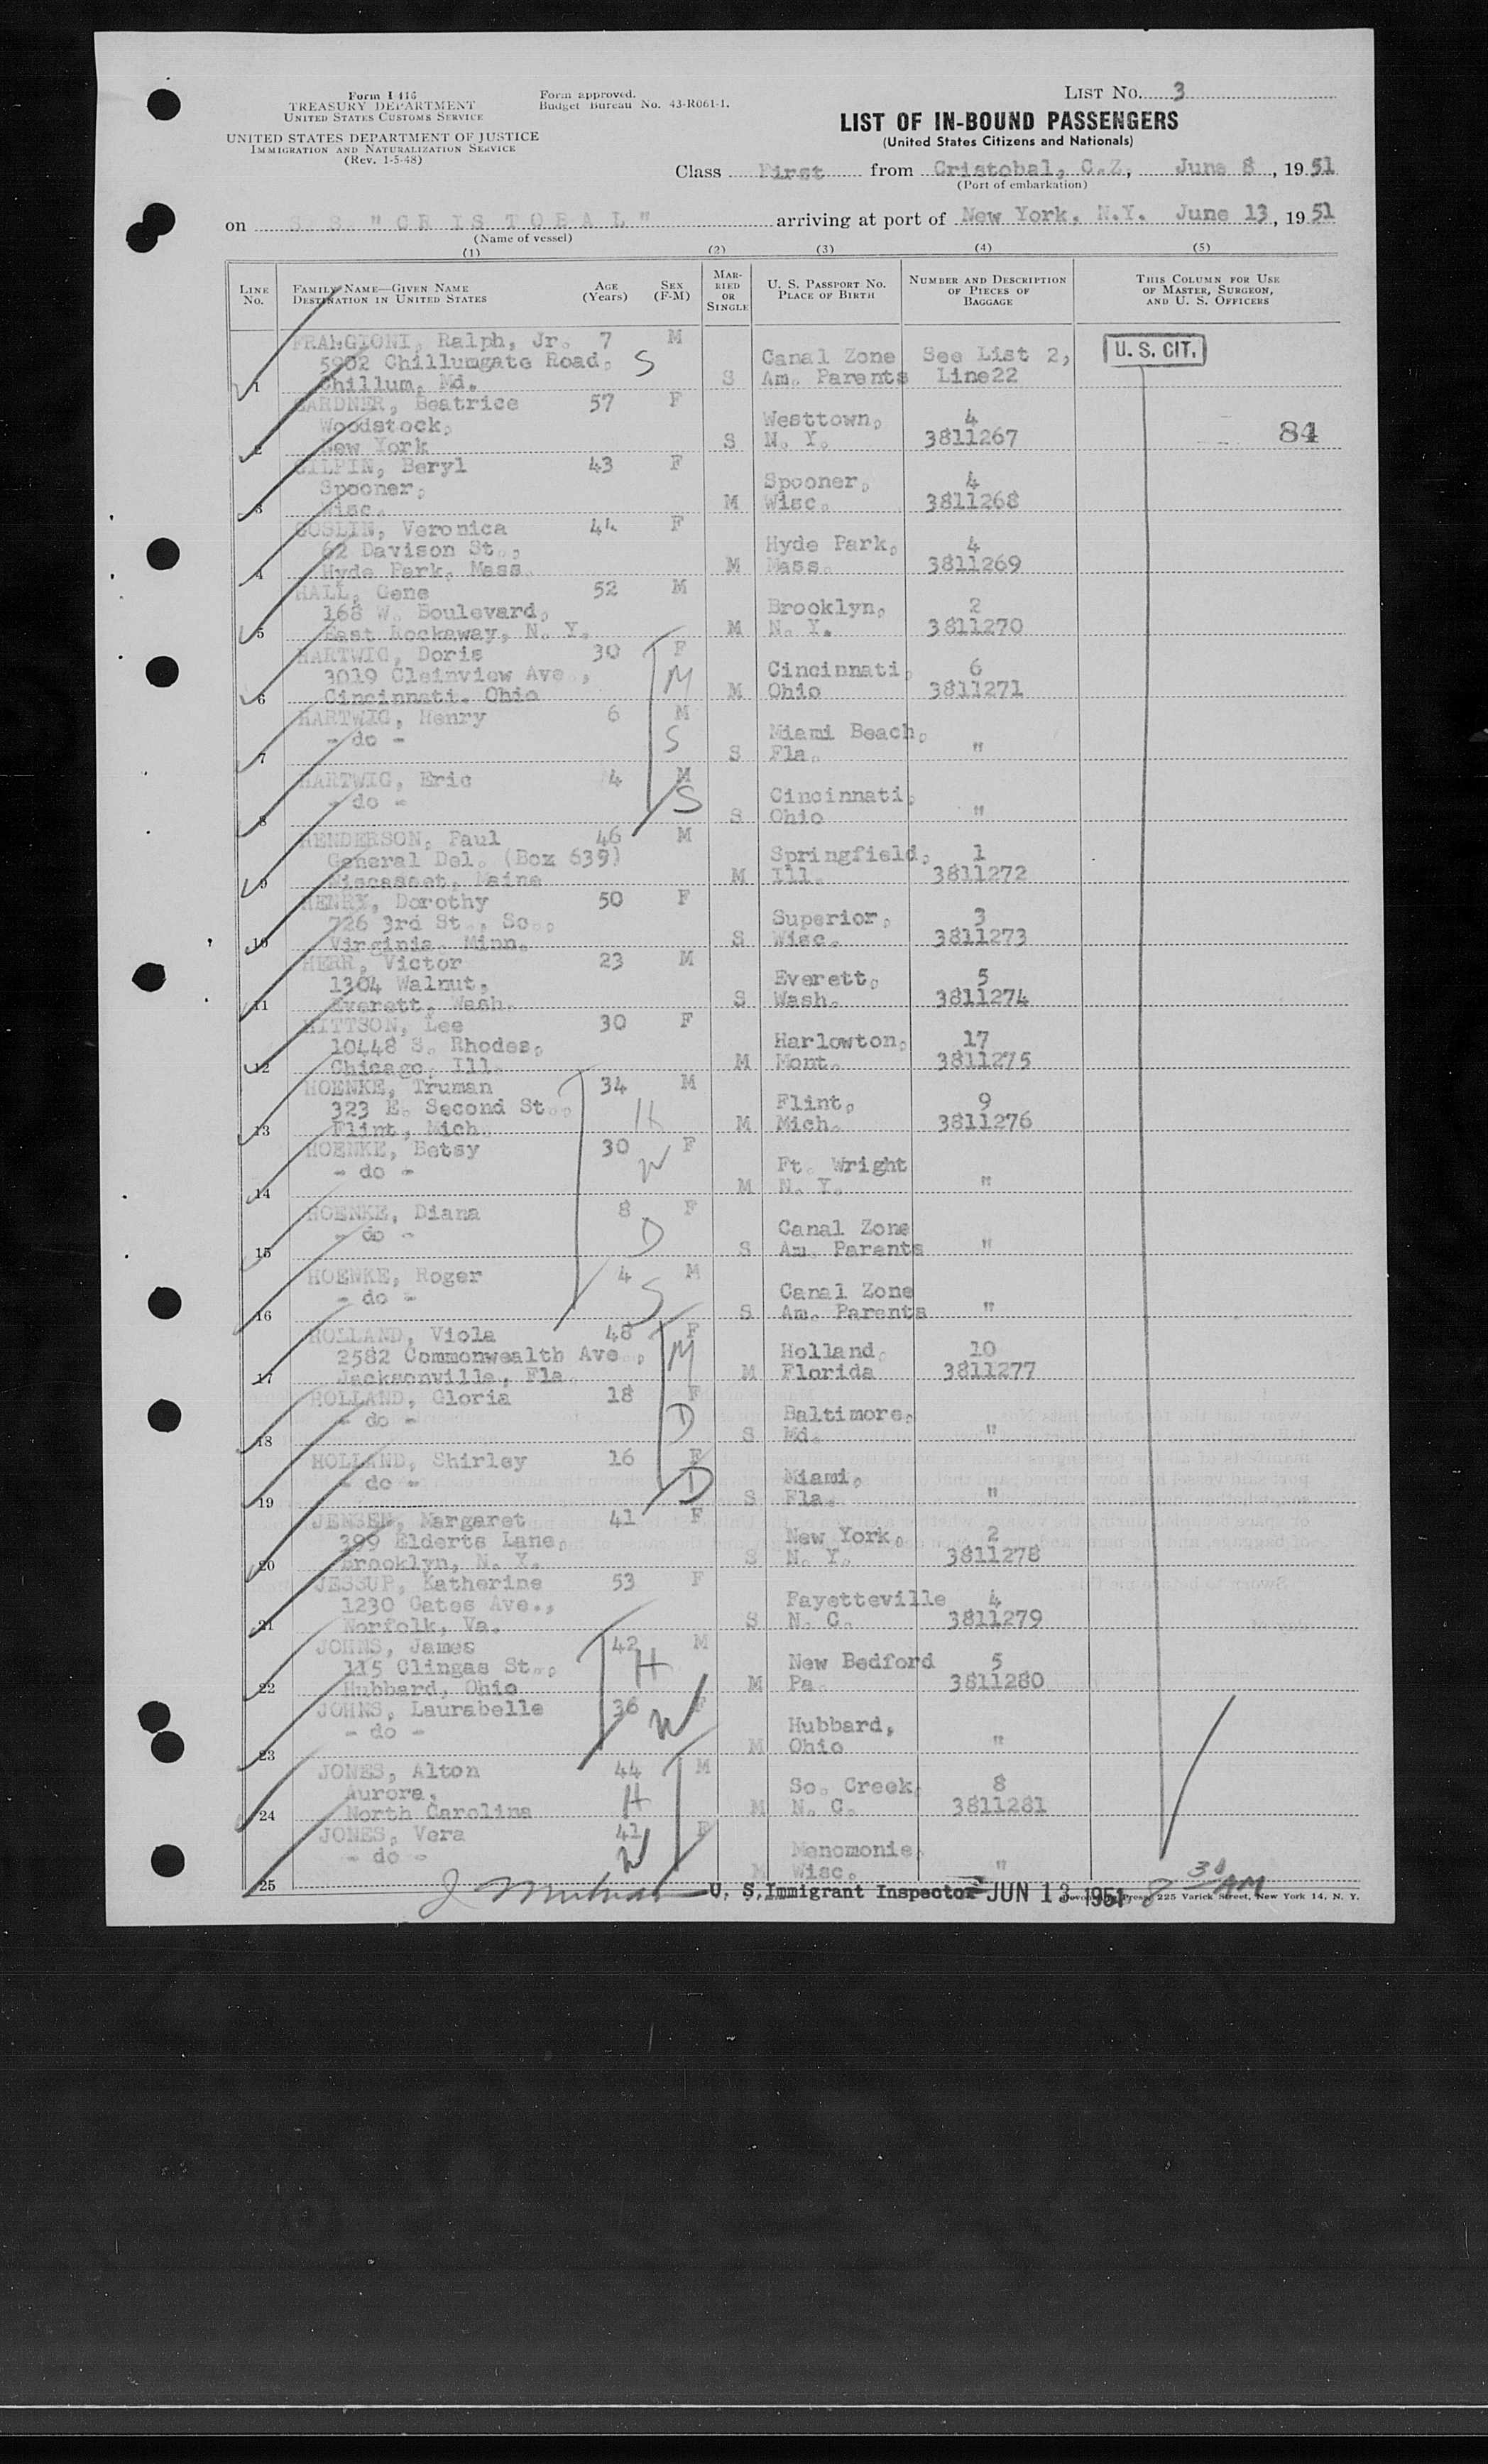 Form I 416
TREASURY DEPARTMENT
UNITED STATES CUSTOMS SERVICE
UNITED STATES DEPARTMENT OF JUSTICE
IMMIGRATION AND NATURALIZATION SERVICE
(Rev. 1-5-48)
Form approved.
Budget Bureau No. 43-R061-1.
LIST No. 3
LIST OF IN-BOUND PASSENGERS
(United States Citizens and Nationals)
Class First from Cristobal, C.Z, June 8, 1951
(Port of embarkation)
on S. S. "CRISTOBAL" arriving at port of New York, N.Y. June 13, 1951
(Name of vessel)
(1) (2) (3) (4) (5)
LINE No. FAMILY NAME—GIVEN NAME DESTINATION IN UNITED STATES AGE (Years) SEX (F-M) MARRIED OR SINGLE U. S. PASSPORT No. PLACE OF BIRTH NUMBER AND DESCRIPTION OF PIECES OF BAGGAGE THIS COLUMN FOR USE OF MASTER, SURGEON, AND U. S. OFFICERS
FRANGIONI, Ralph, Jr. 7 M
5902 Chillumgate Road, S Canal Zone See List 2, U. S. CIT.
1 Chillum, Md. S Am. Parents Line22
GARDNER, Beatrice 57 F
Woodstock, Westtown, 4
2 New York S N. Y. 3811267 84
GILPIN, Beryl 43 F
Spooner, Spooner, 4
3 Wisc. M Wisc. 3811268
GOSLIN, Veronica 44 F
62 Davison St., Hyde Park, 4
4 Hyde Park, Mass. M Mass. 3811269
HALL, Gene 52 M
168 W. Boulevard, Brooklyn, 2
5 East Rockaway, N. Y. M N. Y. 3811270
HARTWIG, Doris 30 F
3019 Cleinview Ave., M Cincinnati, 6
6 Cincinnati, Ohio M Ohio 3811271
HARTWIG, Henry 6 M
- do - S Miami Beach,
7 S Fla. "
HARTWIG, Eric 4 M
- do - S Cincinnati,
8 S Ohio "
HENDERSON, Paul 46 M
General Del. (Box 639) Springfield, 1
9 Wiscasset, Maine M Ill. 3811272
HENRY, Dorothy 50 F
726 3rd St., So., Superior, 3
10 Virginia, Minn. S Wisc. 3811273
HERR, Victor 23 M
1304 Walnut, Everett, 5
11 Everett, Wash. S Wash. 3811274
HITTSON, Lee 30 F
10448 S. Rhodes, Harlowton, 17
12 Chicago, Ill. M Mont. 3811275
HOENKE, Truman 34 M
323 E. Second St., H Flint, 9
13 Flint, Mich. M Mich. 3811276
HOENKE, Betsy 30 F
- do - W Ft. Wright
14 M N. Y. "
HOENKE, Diana 8 F
- do - D Canal Zone
15 S Am. Parents "
HOENKE, Roger 4 M
- do - S Canal Zone
16 S Am. Parents "
HOLLAND, Viola 48 F
2582 Commonwealth Ave., M Holland, 10
17 Jacksonville, Fla. M Florida 3811277
HOLLAND, Gloria 18 F
- do - D Baltimore,
18 S Md. "
HOLLAND, Shirley 16 F
- do - D Miami,
19 S Fla. "
JENSEN, Margaret 41 F
399 Elderts Lane, New York, 2
20 Brooklyn, N. Y. S N. Y. 3811278
JESSUP, Katherine 53 F
1230 Gates Ave., Fayetteville 4
21 Norfolk, Va. S N. C. 3811279
JOHNS, James 42 M
115 Clingas St., H New Bedford 5
22 Hubbard, Ohio M Pa. 3811280
JOHNS, Laurabelle 36 F
- do - W Hubbard,
23 M Ohio "
JONES, Alton 44 M
Aurora, H So. Creek, 8
24 North Carolina M N. C. 3811281
JONES, Vera 41 F
- do - W Menomonie,
25 M Wisc. "
U. S. Immigrant Inspector JUN 13 1951 8 30 AM
Press, 225 Varick Street, New York 14, N. Y.